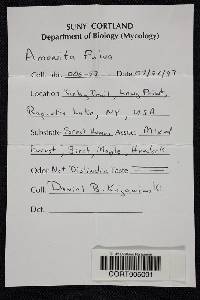 SUNY CORTLAND
Department of Biology (Mycology)
Amanita Fulva
Coll. no. Date
Location Trail, Point,
Raquette Lake, NY, USA
Substrate Forest Humus Assoc. Mixed
Forest, Birch, Maple, Hemlock
Odor Not Distinctive Taste
Coll. Daniel B.
Det.
CORT005001